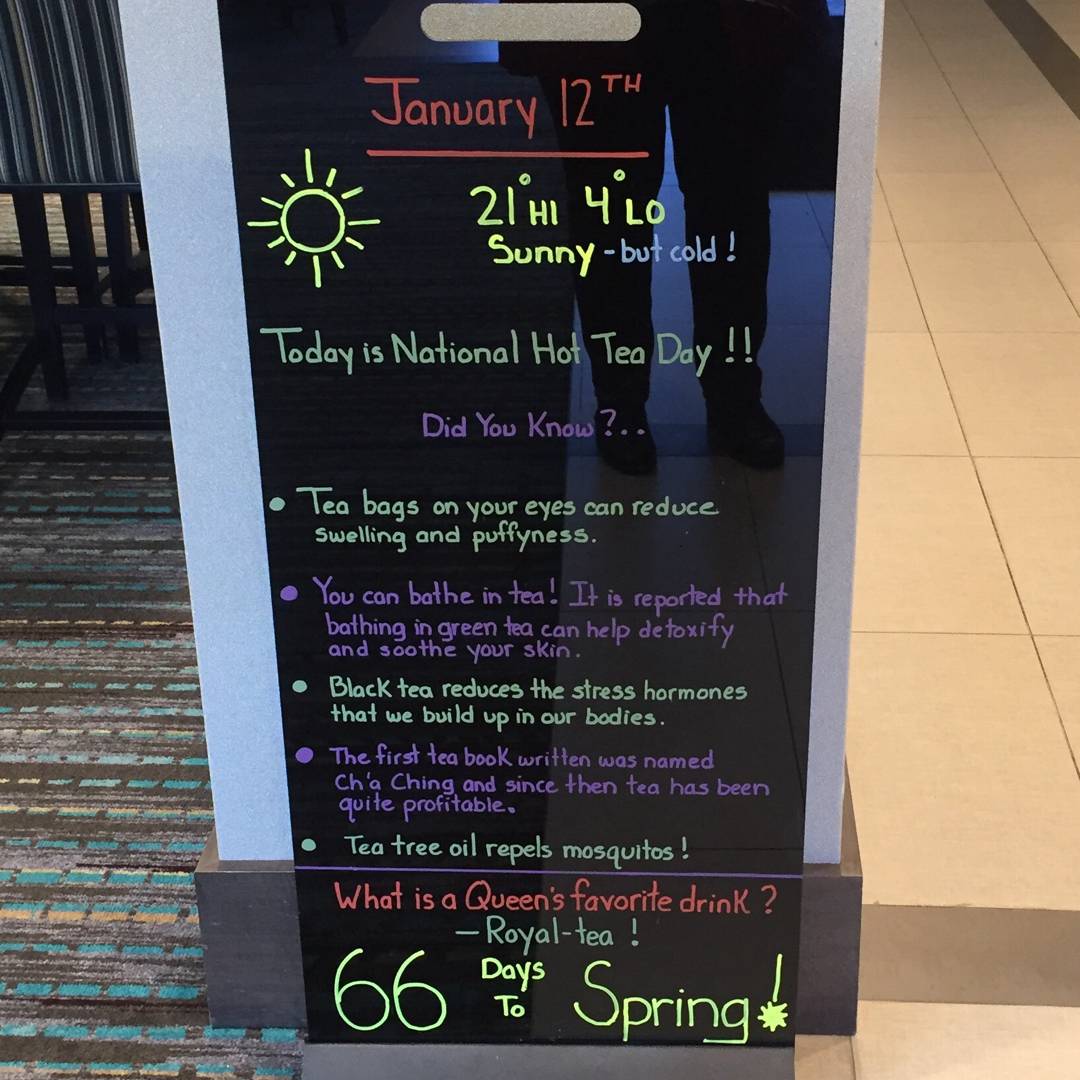 January 12TH
21° HI 4° LO
Sunny - but cold!
Today is National Hot Tea Day!!
Did You Know?..
• Tea bags on your eyes can reduce
swelling and puffyness.
• You can bathe in tea! It is reported that
bathing in green tea can help detoxify
and soothe your skin.
• Black tea reduces the stress hormones
that we build up in our bodies.
• The first tea book written was named
Ch'a Ching and since then tea has been
quite profitable.
• Tea tree oil repels mosquitos!
What is a Queen's favorite drink?
- Royal-tea!
66 Days To Spring!